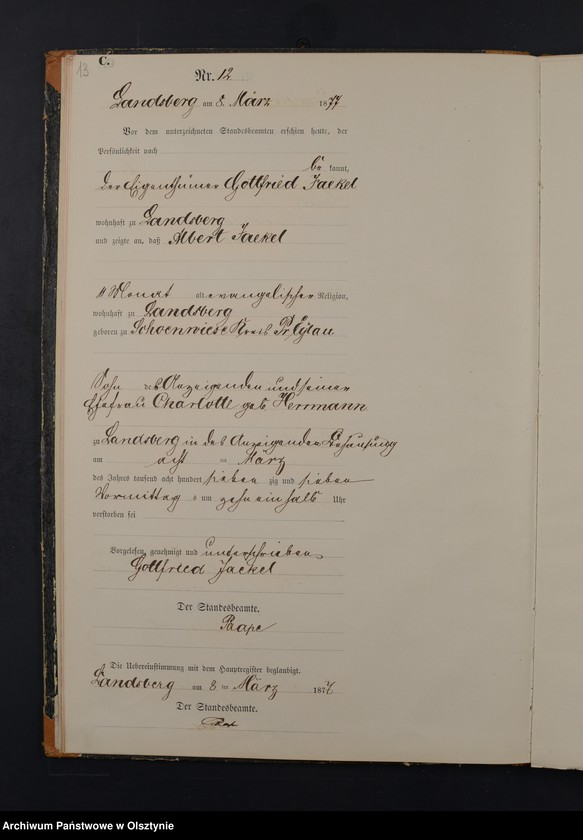 13
C.
Nr. 12
Landsberg am 8. März 1877
Vor dem unterzeichneten Standesbeamten erschien heute, der
Persönlichkeit nach
be kannt,
der Eigenthümer Gottfried Jaekel
wohnhaft zu Landsberg
und zeigte an, daß Albert Jaekel
Monat alt evangelischer Religion,
wohnhaft zu Landsberg
geboren zu Schoenwiese Kreis Pr. Eylau
Sohn des Anzeigenden und seiner
Ehefrau Charlotte geb Herrmann
zu Landsberg in des Anzeigenden Behausung
am acht ten März
des Jahres tausend acht hundert sieben zig und sieben
Vormittag s um zehn einhalb Uhr
verstorben sei
Vorgelesen, genehmigt und unterschrieben
Gottfried Jaekel
Der Standesbeamte.
Paape
Die Uebereinstimmung mit dem Hauptregister beglaubigt.
Landsberg am 8 ten März 1877
Der Standesbeamte.
Archiwum Państwowe w Olsztynie